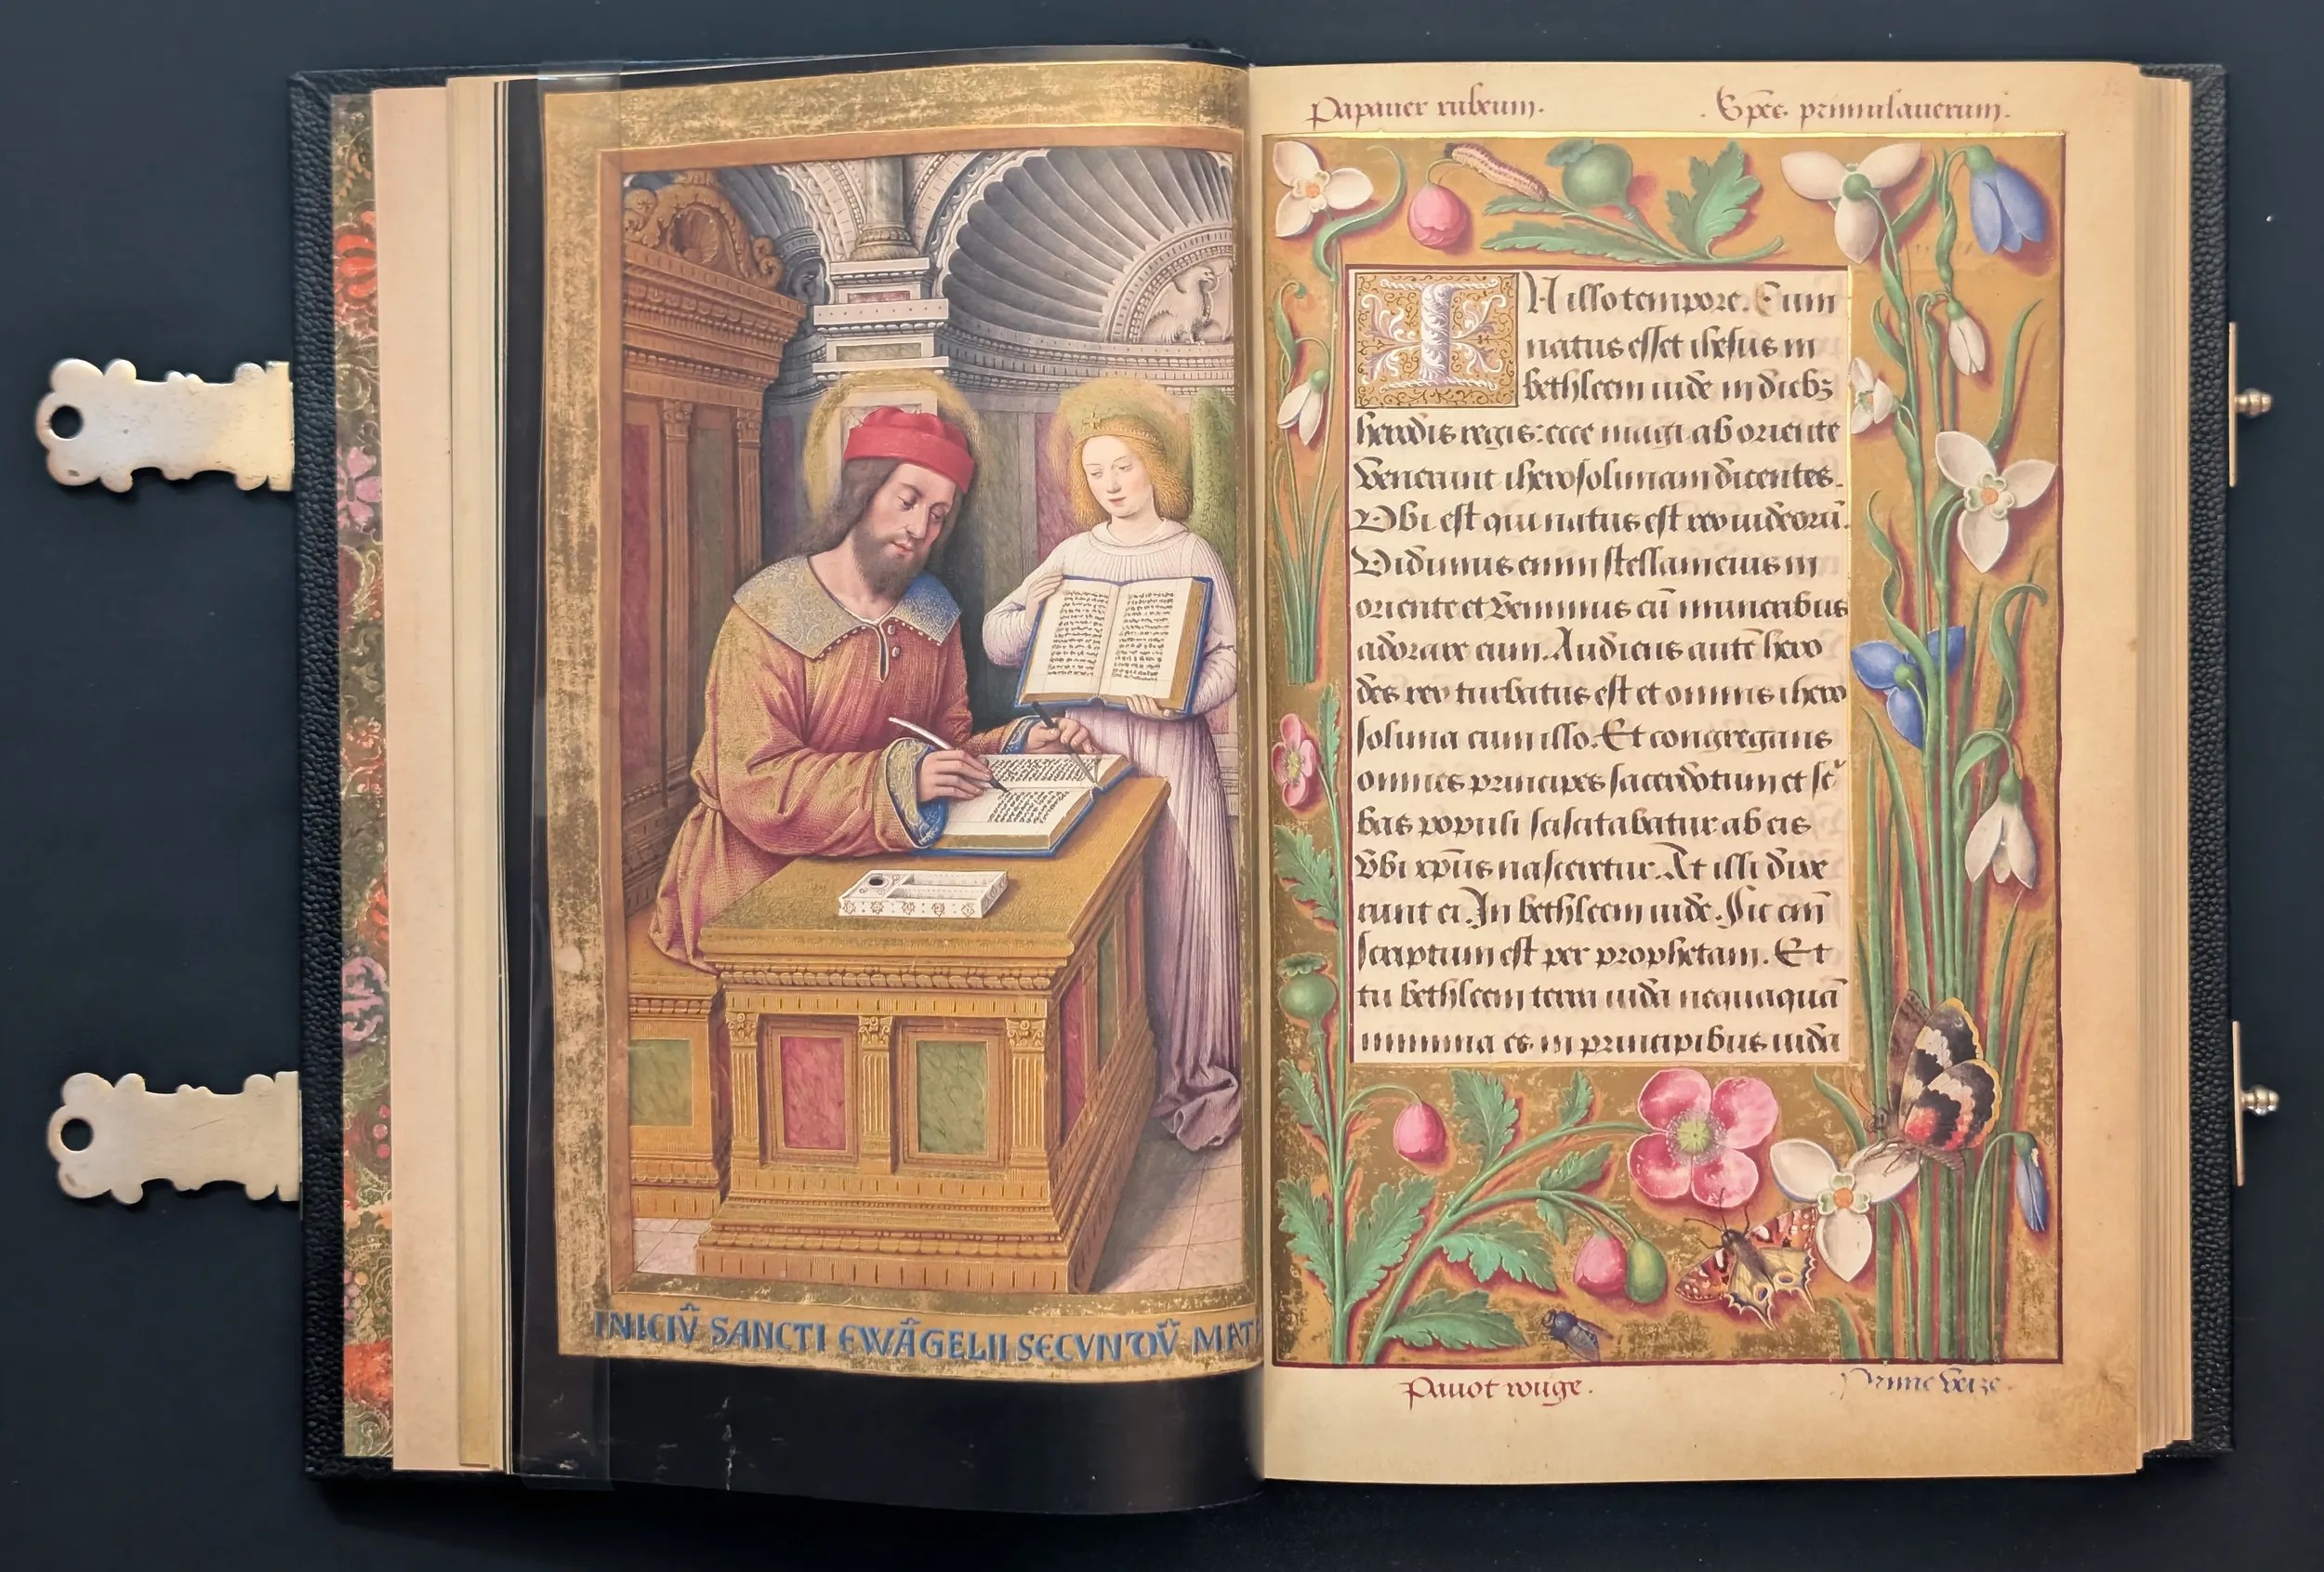 INICIV̄ SANCTI EWĀGELII SECVNDV̄ MATH
Papauer rubeum.
. Sp̄es primulauerum.
IN illo tempore. Cum
natus esset ihesus in
bethleem iude in diebȝ
herodis regis: ecce magi ab oriente
venerunt iherosolimam dicentes.
Vbi est qui natus est rex iudeorū.
Vidimus enim stellam eius in
oriente et venimus cū muneribus
adorare eum. Audiens autē hero
des rex turbatus est et omnis ihero
solima cum illo. Et congregans
omnes principes sacerdotum et sc̄
bas populi sciscitabatur ab eis
vbi xp̄us nasceretur. At illi dixe
runt ei. In bethleem iude. Sic em̄
scriptum est per prophetam. Et
tu bethleem terra iuda nequaquā
minima es in principibus iuda
Pauot rouge.
Prime veize.